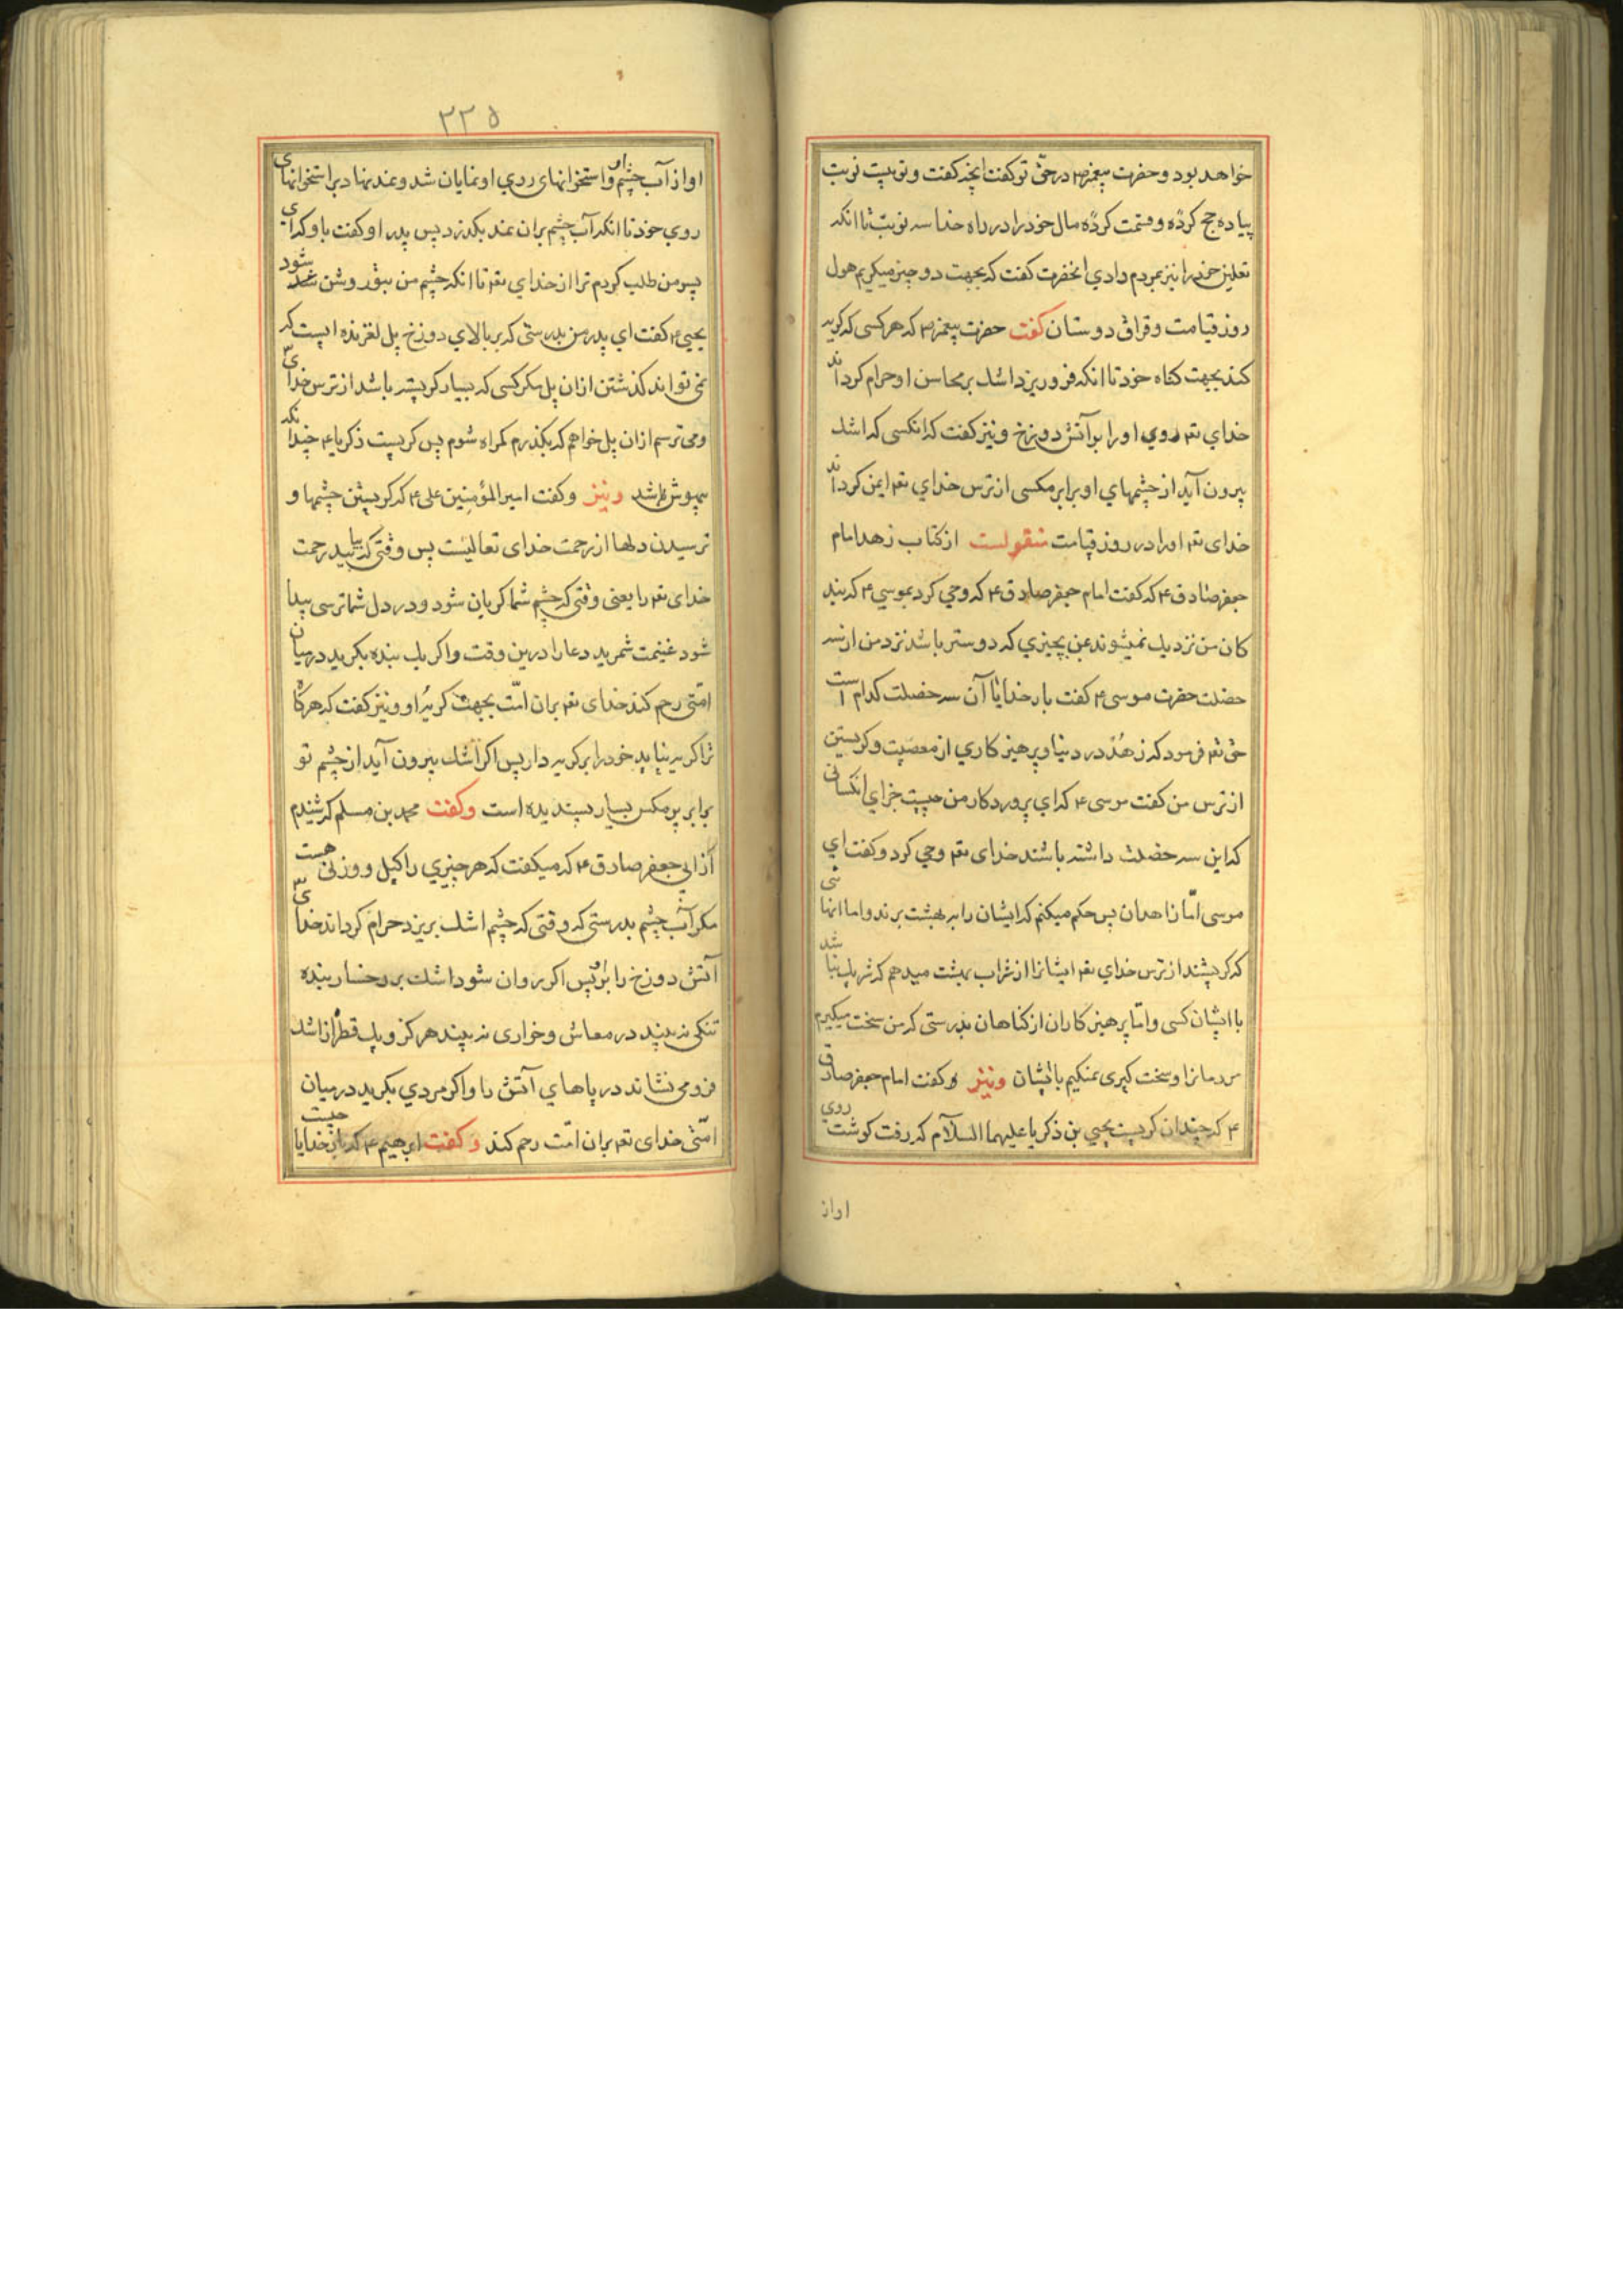 خواهد بود و حضرت پیغمبر ص در حقّ تو گفت انچه گفت و تو بیست نوبت
پیاده حج کردهٔ و قسمت کردهٔ مال خود را در راه خدا سه نوبت تا انکه
نعلین خود را نیز بمردم دادي انحضرت گفت که بجهت دو چیز میگریم هول
روز قیامت و فراق دوستان گفت حضرت پیغمبر ص که هر کسی که گریه
کند بجهت گناه خود تا انکه فرو ریزد اشك بر محاسن او حرام گرداند
خداي تعم روي او را بر آتش دوزخ و نیز گفت که انکسی که اشك
بیرون آید از چشمهاي او برابر مگسی از ترس خداي تعم ایمن گرداند
خدای تعم او را در روز قیامت منقولست از کتاب زهد امام
جعفر صادق ع که گفت امام جعفر صادق ع که وحي کرد بموسي ع که بند
کان من نزدیك نمیشوند بمن بچیزي که دوستر باشد نزد من از سه
خصلت حضرت موسی ع گفت بار خدایا آن سه خصلت کدام است
حق تعم فرمود که زهد در دنیا و پرهیزکاري از معصیت و گریستن
از ترس من گفت موسی ع که اي پروردکار من چیست جزاي انکسانی
که این سه خصلت داشته باشند خدای تعم وحي کرد و گفت اي
موسی امّا زاهدان پس حکم میکنم که ایشان را به بهشت برند و اما انها
که گریستند از ترس خداي تعم ایشانرا از شراب بهشت میدهم که شریك نباشد
با ایشان کسی و امّا پرهیزکاران از کناهان بدرستی که من سخت میگیرم
مردمانرا و سخت گیری نمیکنم با ایشان و نیز و گفت امام جعفر صادق
ع که چندان گریست یحیي بن ذکریا علیهما السلآم که رفت گوشت روی
اواز
٢٣٥
او از آب چشم او و استخوانهای روي او نمایان شد و نمد نهاد بر استخوانهای
روي خود تا انکه آب چشم بران نمد بگذرد پس پدر او گفت باو که اي
پسر من طلب کردم ترا از خداي تعم تا انکه چشم من بتو روشن شود
یحیی ع گفت اي پدر من بدرستی که بر بالاي دوزخ پل لغزنده ایست که
نمی تواند گذشتن ازان پل مگر کسی که بسیار گریسته باشد از ترس خدای
و می ترسم ازان پل خواهم که بگذرم گمراه شوم پس گریست ذکریا ع چندانکه
بیهوش شد و نیز و گفت امیر المؤمنین علی ع که گریستن چشمها و
ترسیدن دلها از رحمت خدای تعالیست پس وقتی که بیابید رحمت
خدای تعم را یعنی وقتی که چشم شما گریان شود و در دل شما ترسی پیدا
شود غنیمت شمرید دعا را درین وقت و اگر یك بنده بگرید در میان
امّتی رحم کند خدای تعم بران امّت بجهت گریهٔ او و نیز گفت که هر گاه
ترا گریه نیاید خود را بر گریه دار پس اگر اشك بیرون آید از چشم تو
برابر پر مگس بسیار پسندیده است و گفت محمد بن مسلم که شنیدم
از ابي جعفر صادق ع که میگفت که هر چیزي را کیل و وزنی هست
مگر آب چشم بدرستی که وقتی که چشم اشك بریزد حرام گرداند خدای
آتش دوزخ را برو پس اگر روان شود اشك بر رخسار بنده
تنگی نه بیند در معاش و خواری نه بیند هرگز و یك قطره از اشك
فرو می نشاند دریاهاي آتش را و اگر مردي بگرید در میان
امّتی خدای تعم بران امّت رحم کند و گفت ابرهیم ع که بار خدایا چیست